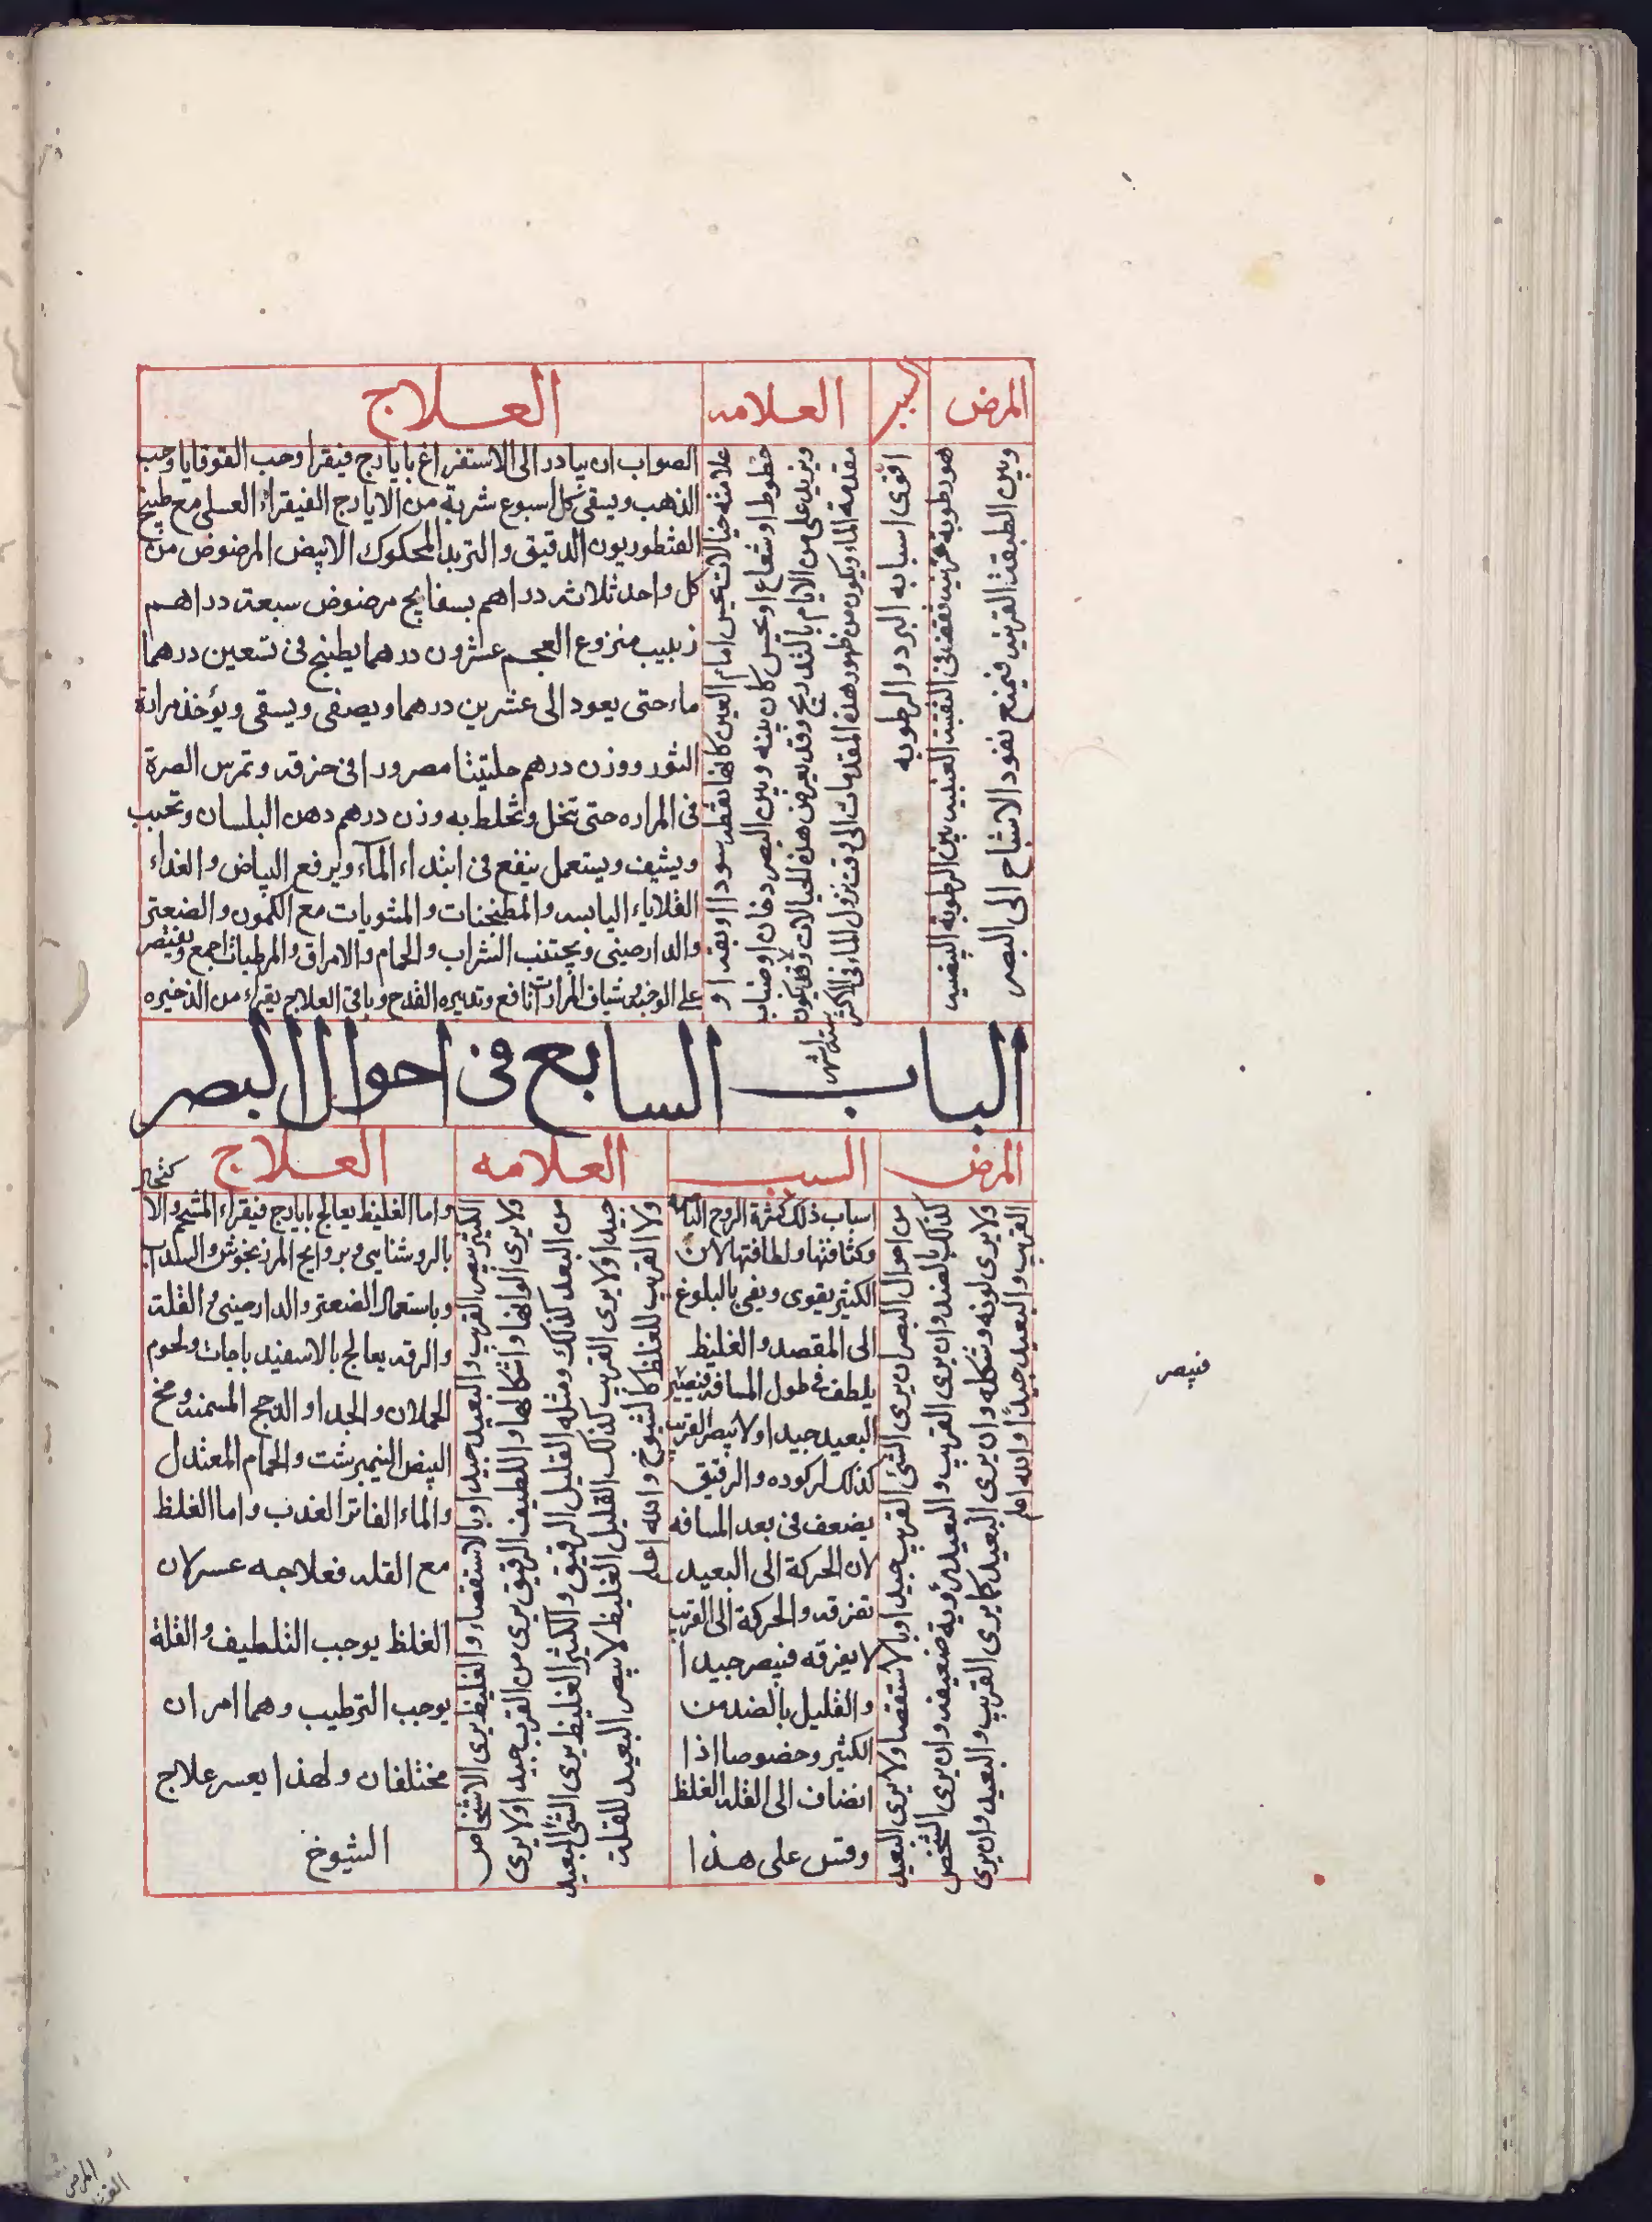 المرض
السبب
العلامه
العلاج
هو رطوبة غريبه تقف في الثقبة العنبيه بين الرطوبة البيضيه
وبين الطبقة القرنيه فيمنع نفود الاشباح الى البصر
اقوى اسبابه البرد والرطوبه
علامته خيالات تحس امام العين كانها نقط سودا او بقدا او
خطوط او شعاع او يحس كان بينه وبين البصر دخان او ضباب
ويزيد على من الايام بالتدريج وقد يعرض هذه الخيالات ولا يكون
مقدمة الماء ويكون من ظهور هذه المقدمات الى وقت نزول الماء في الاكثر
ستة اشهر
الصواب ان يبادر الى الاستفراغ بايارج فيقرا وحب القوقايا وحب
الذهب ويسقى كل اسبوع شربة من الايارج الفيقراء العسلى مع طبيخ
القنطوريون الدقيق والتربد المحكوك الابيض المرضوض من
كل واحد ثلاثه دراهم بسفايج مرضوض سبعة دراهم
زبيب منزوع العجم عشرون درهما يطبخ فى تسعين درهما
ماء حتى يعود الى عشرين درهما ويصفى ويسقى ويؤخذ مرارة
الثور ووزن درهم حلتيثا مصرورا فى خرقه وتمرس الصرة
فى المراره حتى تنحل وتخلط به وزن درهم دهن البلسان وتحبب
ويشيف ويستعمل ينفع فى ابتداء المآء ويرفع البياض والغداء
القلاياء اليابسه والمطجنات والمشويات مع الكمون والصعتر
والدارصينى ويجتنب الشراب والحمام والامراق والمرطبات اجمع ويقتصر
على الوجبه وشياف المرارات نافع وتدبيره القدح وباقى العلاج يقراء من الذخيره
الباب السابع فى احوال البصر
المرض
السبب
العلامه
العلاج
من احوال البصر ان يرى الشئ القريب جيدا وبالاستقصا ولا يرى البعيد
كذلك بالضد وان يرى القريب والبعيد رؤية ضعيفه وان يرى الشخص
ولا يرى لونه وشكله وان يرى البعيد كما يرى القريب والبعيد وان يرى
القريب والبعيد جيدًا والله اعلم
اسباب ذلك كثرة الروح الباصره
وكثافتها ولطافتها لان
الكثير يقوى ويفى بالبلوغ
الى المقصد والغليظ
يلطف فى طول المسافه فيصير
البعيد جيدا ولا يبصر القريب
كذلك لركوده والرقيق
يضعف فى بعد المسافه
لان الحركة الى البعيد
تفرقه والحركة الى القريب
لا يفرقه فيبصر جيدا
والقليل بالضد من
الكثير وخصوصا اذا
انضاف الى القله الغلظ
وقس على هذا
الكثير يبصر القريب والبعيد جيدا وبالاستقصاء والغليظ يرى الاشخاص
ولا يرى الوانها واشكالها واللطيف الرقيق يرى من القرب جيدا ولا يرى
من البعد كذلك ومثله القليل الرقيق والكثير الغليظ يرى الشئ البعيد
جيدا ولا يرى القريب كذلك القليل الغليظ لا يبصر البعيد للقلة
ولا القريب للغلظ كالشيوخ والله اعلم
واما الغليظ يعالج بايارج فيقراء المشحم والا كتحال
بالروشنايى وبروايح المرزنجوش والسداب
وباستعمال الصعتر والدارصينى والقلة
والرقه يعالج بالاسفيدباجات ولحوم
الحملان والجدا والدجج المسمنه ومخ
البيض النيمبرشت والحمام المعتدل
والماء الفاتر العذب واما الغلظ
مع القله فعلاجه عسر لان
الغلظ يوجب التلطيف والقلة
يوجب الترطيب وهما امران
مختلفان ولهذا يعسر علاج
الشيوخ
فيبصر